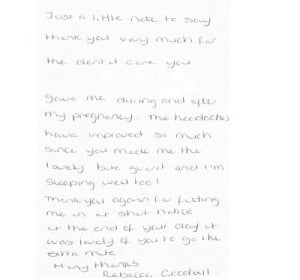 Just a little note to say
thank you very much for
the dental care you
gave me during and after
my pregnancy. The headaches
have improved so much
since you made me the
lovely bite guard and I'm
sleeping well too!
Thank you again for fitting
me in at short notice
at the end of your day it
was lovely of you to go the
extra mile.
Many thanks
Rebecca Goodall.